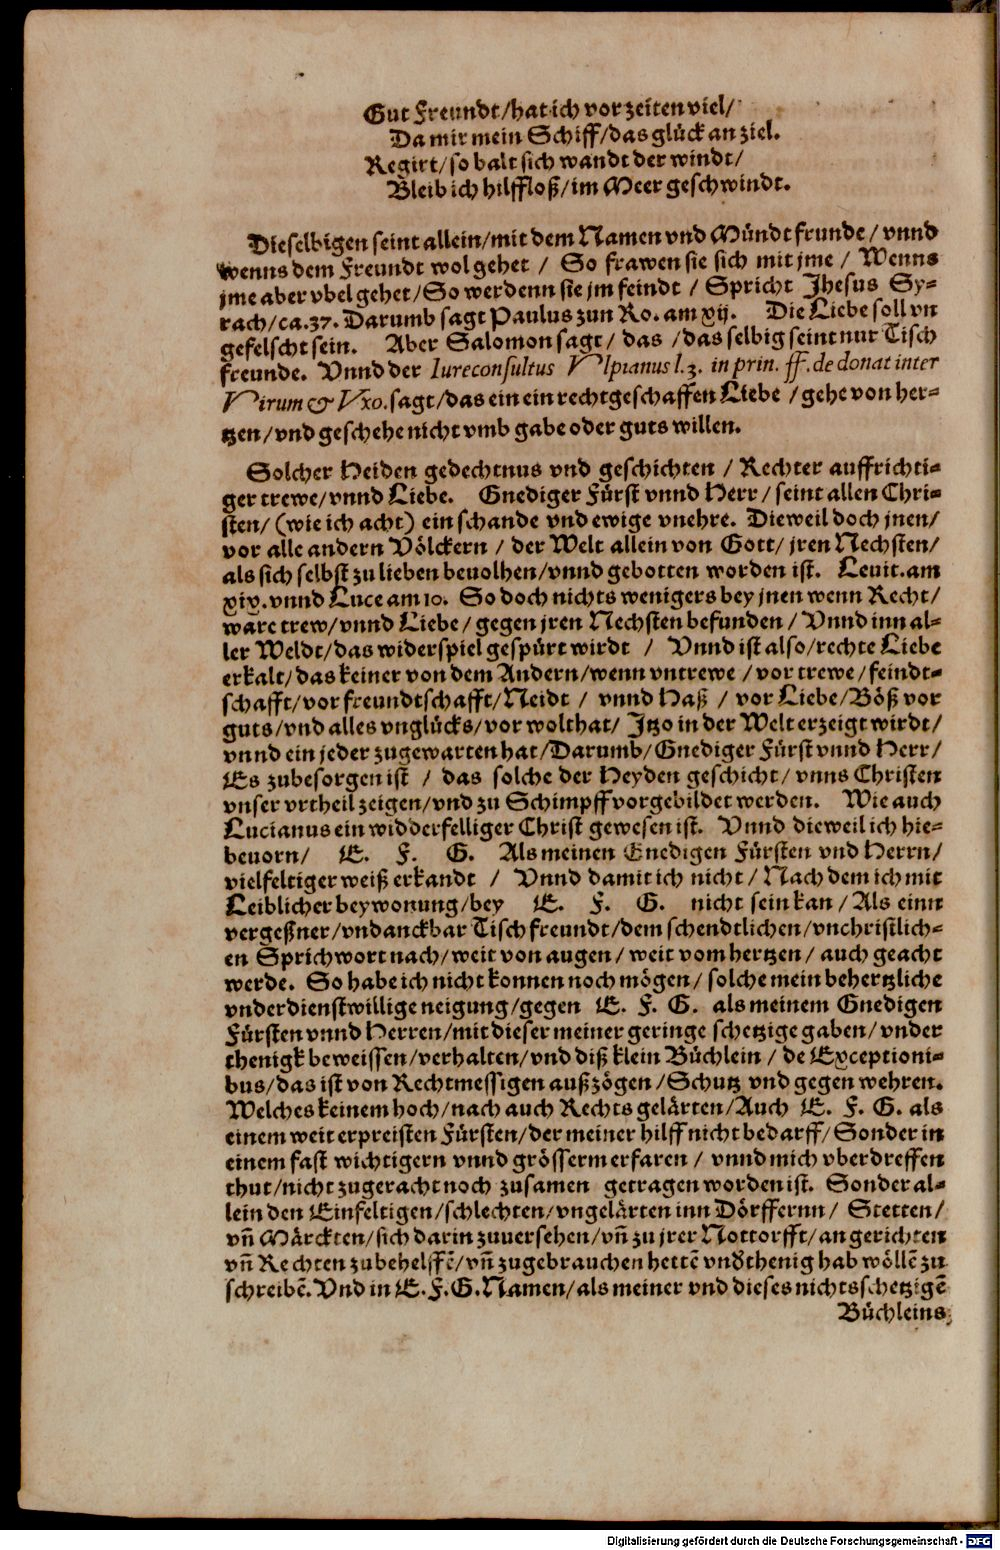 Gut Freundt/hat ich vor zeiten viel/
Da mir mein Schiff/das glück an ziel.
Regirt/so balt sich wandt der windt/
Bleib ich hilffloß/im Meer geschwindt.
Dieselbigen seint allein/mit dem Namen vnd Mündt frunde/vnnd
wenns dem Freundt wol gehet / So frawen sie sich mit jme / Wenns
jme aber vbel gehet/So werdenn sie jm feindt / Spricht Jhesus Sy-
rach/ca.37. Darumb sagt Paulus zun Ro. am xij. Die Liebe soll vn
gefelscht sein. Aber Salomon sagt/ das /das selbig seint nur Tisch
freunde. Vnnd der Iureconsultus Vlpianus l.3. in prin. ff. de donat inter
Virum & Vxo. sagt/das ein ein rechtgeschaffen Liebe /gehe von her-
tzen/vnd geschehe nicht vmb gabe oder guts willen.
Solcher Heiden gedechtnus vnd geschichten / Rechter auffrichti-
ger trewe/vnnd Liebe. Gnediger Fürst vnnd Herr/ seint allen Chri-
sten/ (wie ich acht) ein schande vnd ewige vnehre. Dieweil doch jnen/
vor alle andern Völckern / der Welt allein von Gott/ jren Nechsten/
als sich selbst zu lieben beuolhen/vnnd gebotten worden ist. Leuit. am
xix. vnnd Luce am 10. So doch nichts wenigers bey jnen wenn Recht/
ware trew/vnnd Liebe/ gegen jren Nechsten befunden / Vnnd inn al-
ler Weldt/das widerspiel gespürt wirdt / Vnnd ist also/rechte Liebe
erkalt/das keiner von dem Andern/wenn vntrewe / vor trewe/feindt-
schafft/vor freundtschafft/Neidt / vnnd Haß / vor Liebe/Böß vor
guts/vnd alles vnglücks/vor wolthat/ Jtzo in der Welt erzeigt wirdt/
vnnd ein jeder zugewarten hat/Darumb/Gnediger Fürst vnnd Herr/
Es zubesorgen ist / das solche der Heyden geschicht/ vnns Christen
vnser vrtheil zeigen/vnd zu Schimpff vorgebildet werden. Wie auch
Lucianus ein widderfelliger Christ gewesen ist. Vnnd dieweil ich hie-
beuorn/ E. F. G. Als meinen Gnedigen Fürsten vnd Herrn/
vielfeltiger weiß erkandt / Vnnd damit ich nicht/ Nach dem ich mit
Leiblicher beywonung/bey E. F. G. nicht sein kan / Als einn
vergeßner/vndanckbar Tischfreundt/dem schendtlichen/vnchristlich-
en Sprichwort nach/weit von augen/ weit vom hertzen/ auch geacht
werde. So habe ich nicht konnen noch mögen/ solche mein behertzliche
vnderdienstwillige neigung/gegen E. F. G. als meinem Gnedigen
Fürsten vnnd Herren/mit dieser meiner geringe schetzige gaben/ vnder
thenigk beweissen/verhalten/vnd diß klein Büchlein / de Exceptioni-
bus/das ist von Rechtmessigen außzögen/Schutz vnd gegen wehren.
Welches keinem hoch/nach auch Rechts gelärten/Auch E. F. G. als
einem weit erpreisten Fürsten/der meiner hilff nicht bedarff/ Sonder in
einem fast wichtigern vnnd grösserm erfaren / vnnd mich vberdreffen
thut/nicht zugeracht noch zusamen getragen worden ist. Sonder al-
lein den Einfeltigen/schlechten/vngelärten inn Dörffernn/ Stetten/
vñ Märckten/sich darin zuuersehen/vñ zu jrer Nottorfft/an gerichten
vñ Rechten zubehelffẽ/vñ zugebrauchen hettẽ vnd̕thenig hab wöllẽ zu
schreibẽ. Vnd in E.F.G. Namen/als meiner vnd dieses nichtsschetzigẽ
Büchleins
Digitalisierung gefördert durch die Deutsche Forschungsgemeinschaft - DFG